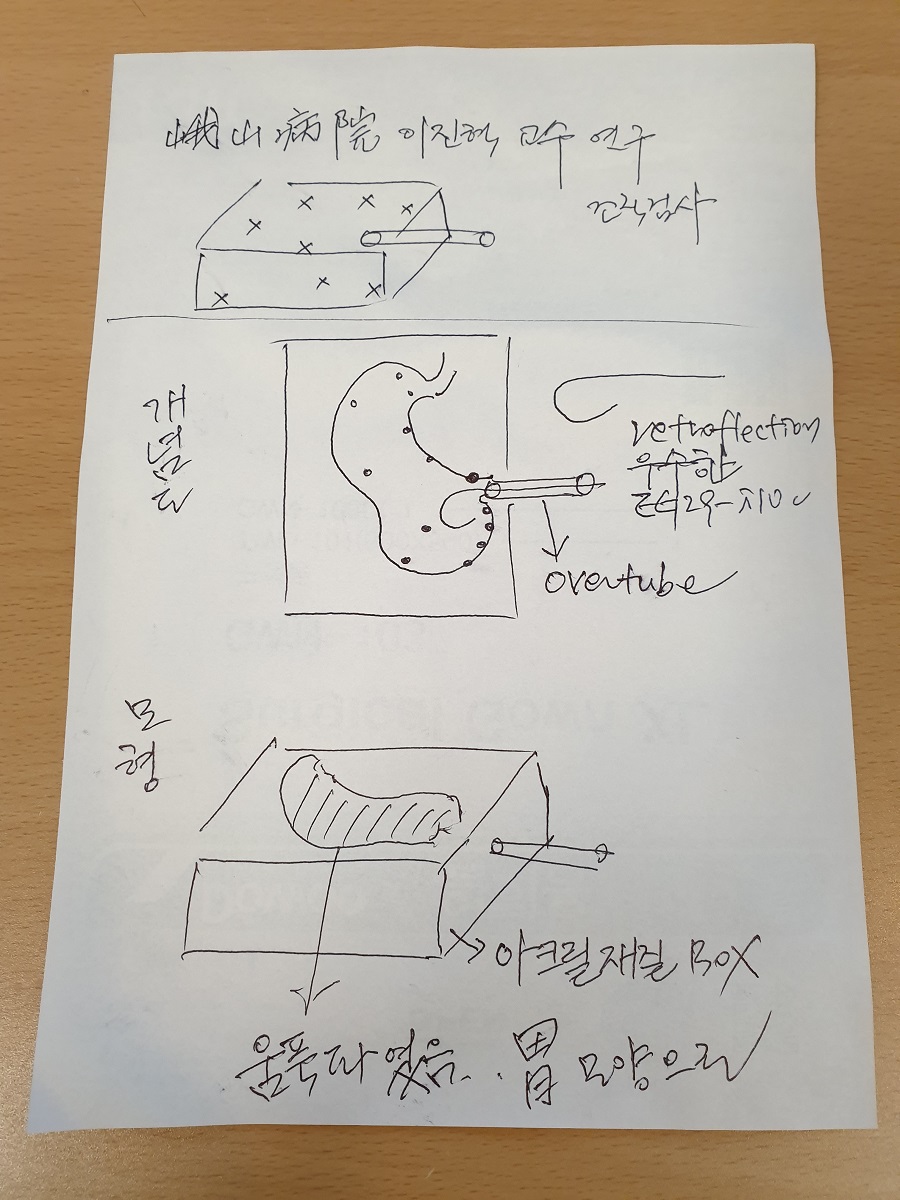 峨山病院 이진혁 교수 연구
조직검사
개념도
retroflection
우수한
overtube
모형
아크릴재질 BOX
움푹파였음. 胃 모양으로